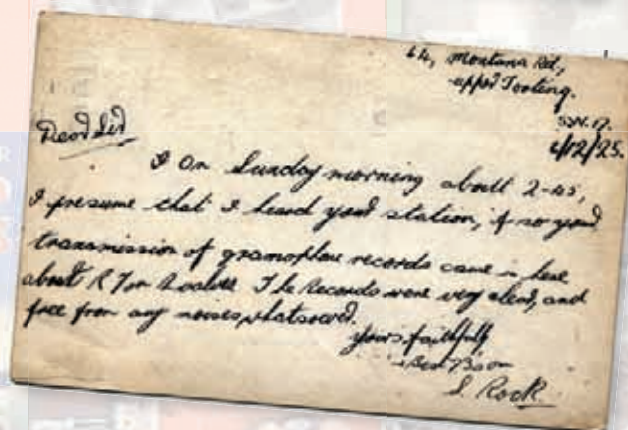 64, Montana Rd,
Upper Tooting.
S.W. 17.
4/12/25.
Dear Sir
I On Sunday morning about 2-45,
I presume that I heard your station, if so your
transmission of gramophone records came in here
about R7 on 2 valves. The Records were very clear, and
free from any noises, whatsoever.
yours faithfully
S. Rock.